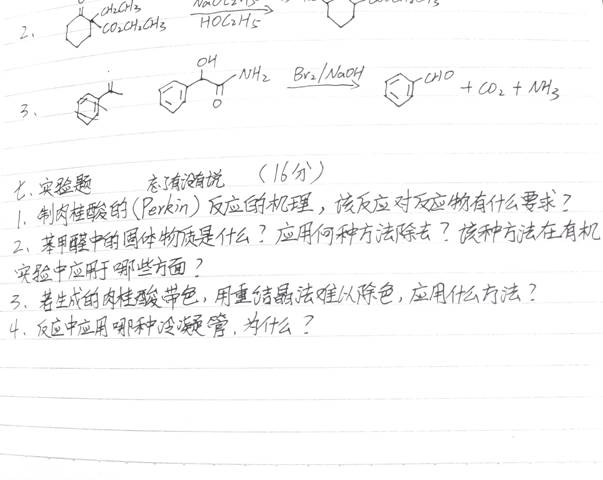 2. CH₂CH₃ CO₂CH₂CH₃ NaOC₂H₅ HOC₂H₅
3. OH NH₂ O Br₂/NaOH CHO + CO₂ + NH₃
七. 实验题 忘了有没有说 (16分)
1. 制肉桂酸的(Perkin)反应的机理,该反应对反应物有什么要求?
2. 苯甲醛中的固体物质是什么?应用何种方法除去?该种方法在有机
实验中应用于哪些方面?
3. 若生成的肉桂酸带色,用重结晶法难以除色,应用什么方法?
4. 反应中应用哪种冷凝管,为什么?